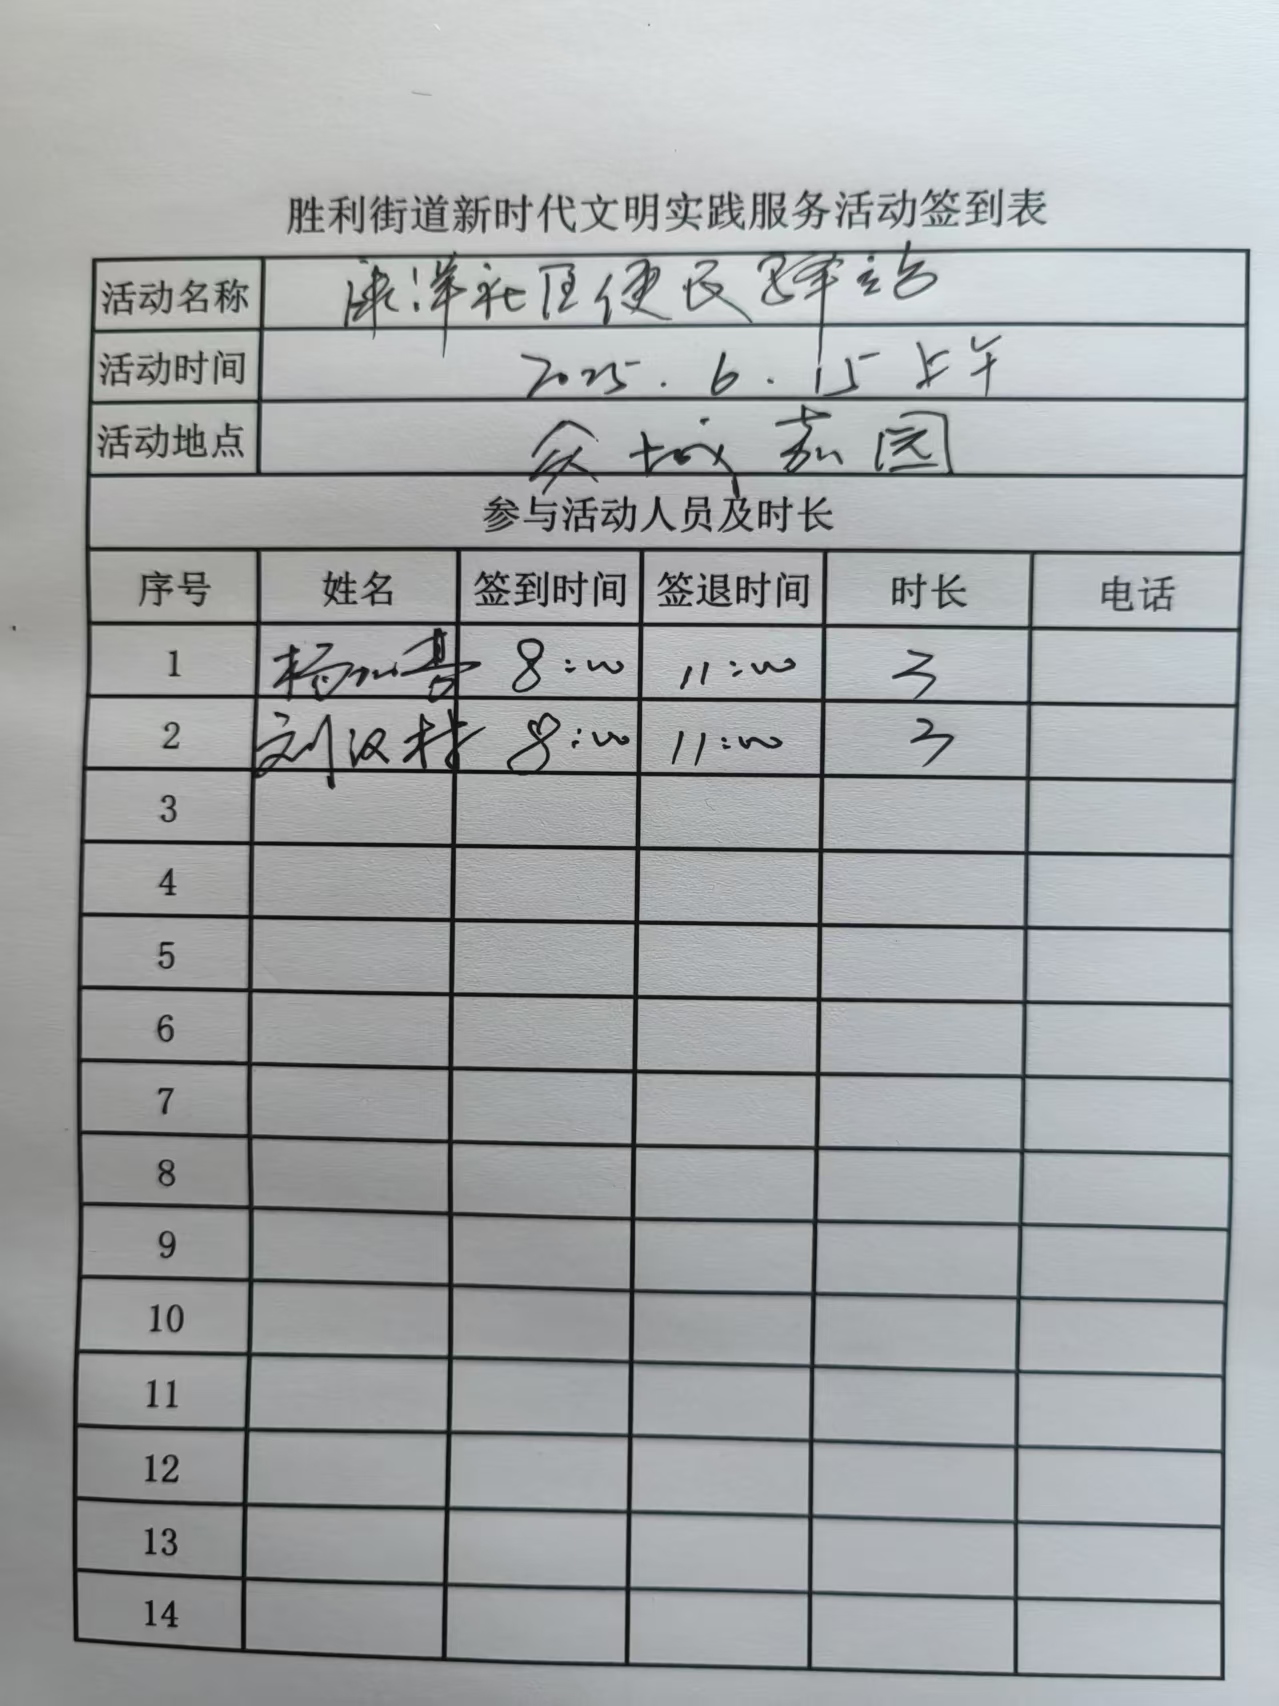 胜利街道新时代文明实践服务活动签到表
活动名称 康洋社区便民驿站
活动时间 2025.6.15上午
活动地点 众城嘉园
参与活动人员及时长
序号 姓名 签到时间 签退时间 时长 电话
1 杨 8:00 11:00 3
2 刘汉村 8:00 11:00 3
3
4
5
6
7
8
9
10
11
12
13
14